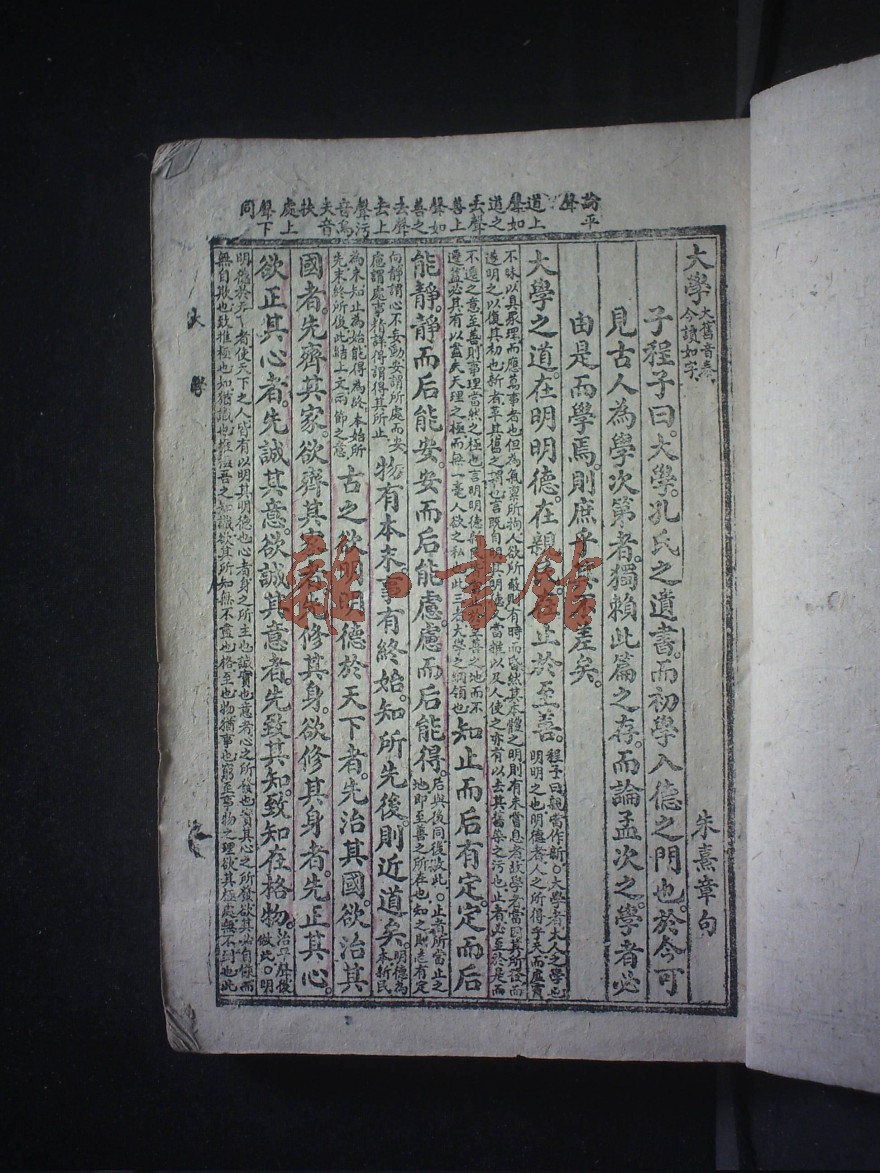 論平
聲
道上
聲如
道之
去聲
善上
聲如
善之
去聲
去上
聲污
音烏
夫音
扶
處上
聲下
同
大學大舊音泰今讀如字
朱熹章句
子程子曰。大學。孔氏之遺書。而初學入德之門也。於今可
見古人為學次第者。獨賴此篇之存。而論孟次之。學者必
由是而學焉。則庶乎其不差矣。
大學之道。在明明德。在親民。在止於至善。程子曰親當作新。○大學者大人之學也
明明之也明德者人之所得乎天而虛靈
不昧以具眾理而應萬事者也但為氣稟所拘人欲所蔽則有時而昏然其本體之明則有未嘗息者故學者當因其所發而
遂明之以復其初也新者革其舊之謂也言既自明其明德又當推以及人使之亦有以去其舊染之污也止者必至於是而
不遷之意至善則事理當然之極也言明明德新民皆當止於至善之地而不
遷蓋必其有以盡夫天理之極而無一毫人欲之私也此三者大學之綱領也
知止而后有定。定而后
能靜。靜而后能安。安而后能慮。慮而后能得。后與後同後放此。○止者所當止之
地即至善之所在也知之則志有定
向靜謂心不妄動安謂所處而安
慮謂處事精詳得謂得其所止
物有本末。事有終始。知所先後。則近道矣。明德為
本新民
為末知止為始能得為終本始所
先末終所後此結上文兩節之意
古之欲明明德於天下者。先治其國。欲治其
國者。先齊其家。欲齊其家者。先修其身。欲修其身者。先正其心。
欲正其心者。先誠其意。欲誠其意者。先致其知。致知在格物。治平聲後
放此。○明
明德於天下者使天下之人皆有以明其明德也心者身之所主也誠實也意者心之所發也實其心之所發欲其必自慊而
無自欺也致推極也知猶識也推極吾之知識欲其所知無不盡也格至也物猶事也窮至事物之理欲其極處無不到也此
大學
雜·書館